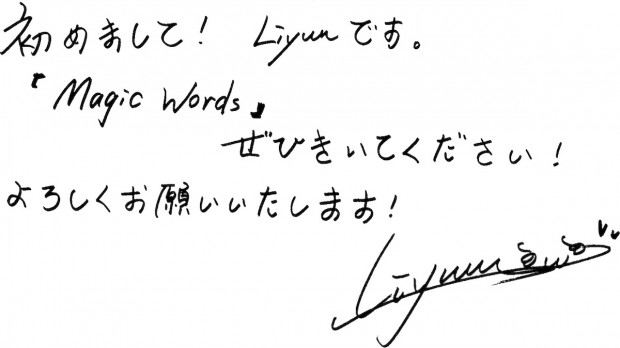 初めまして! Liyunです。
『Magic Words』
ぜひきいてください!
よろしくお願いいたします!
Liyuu